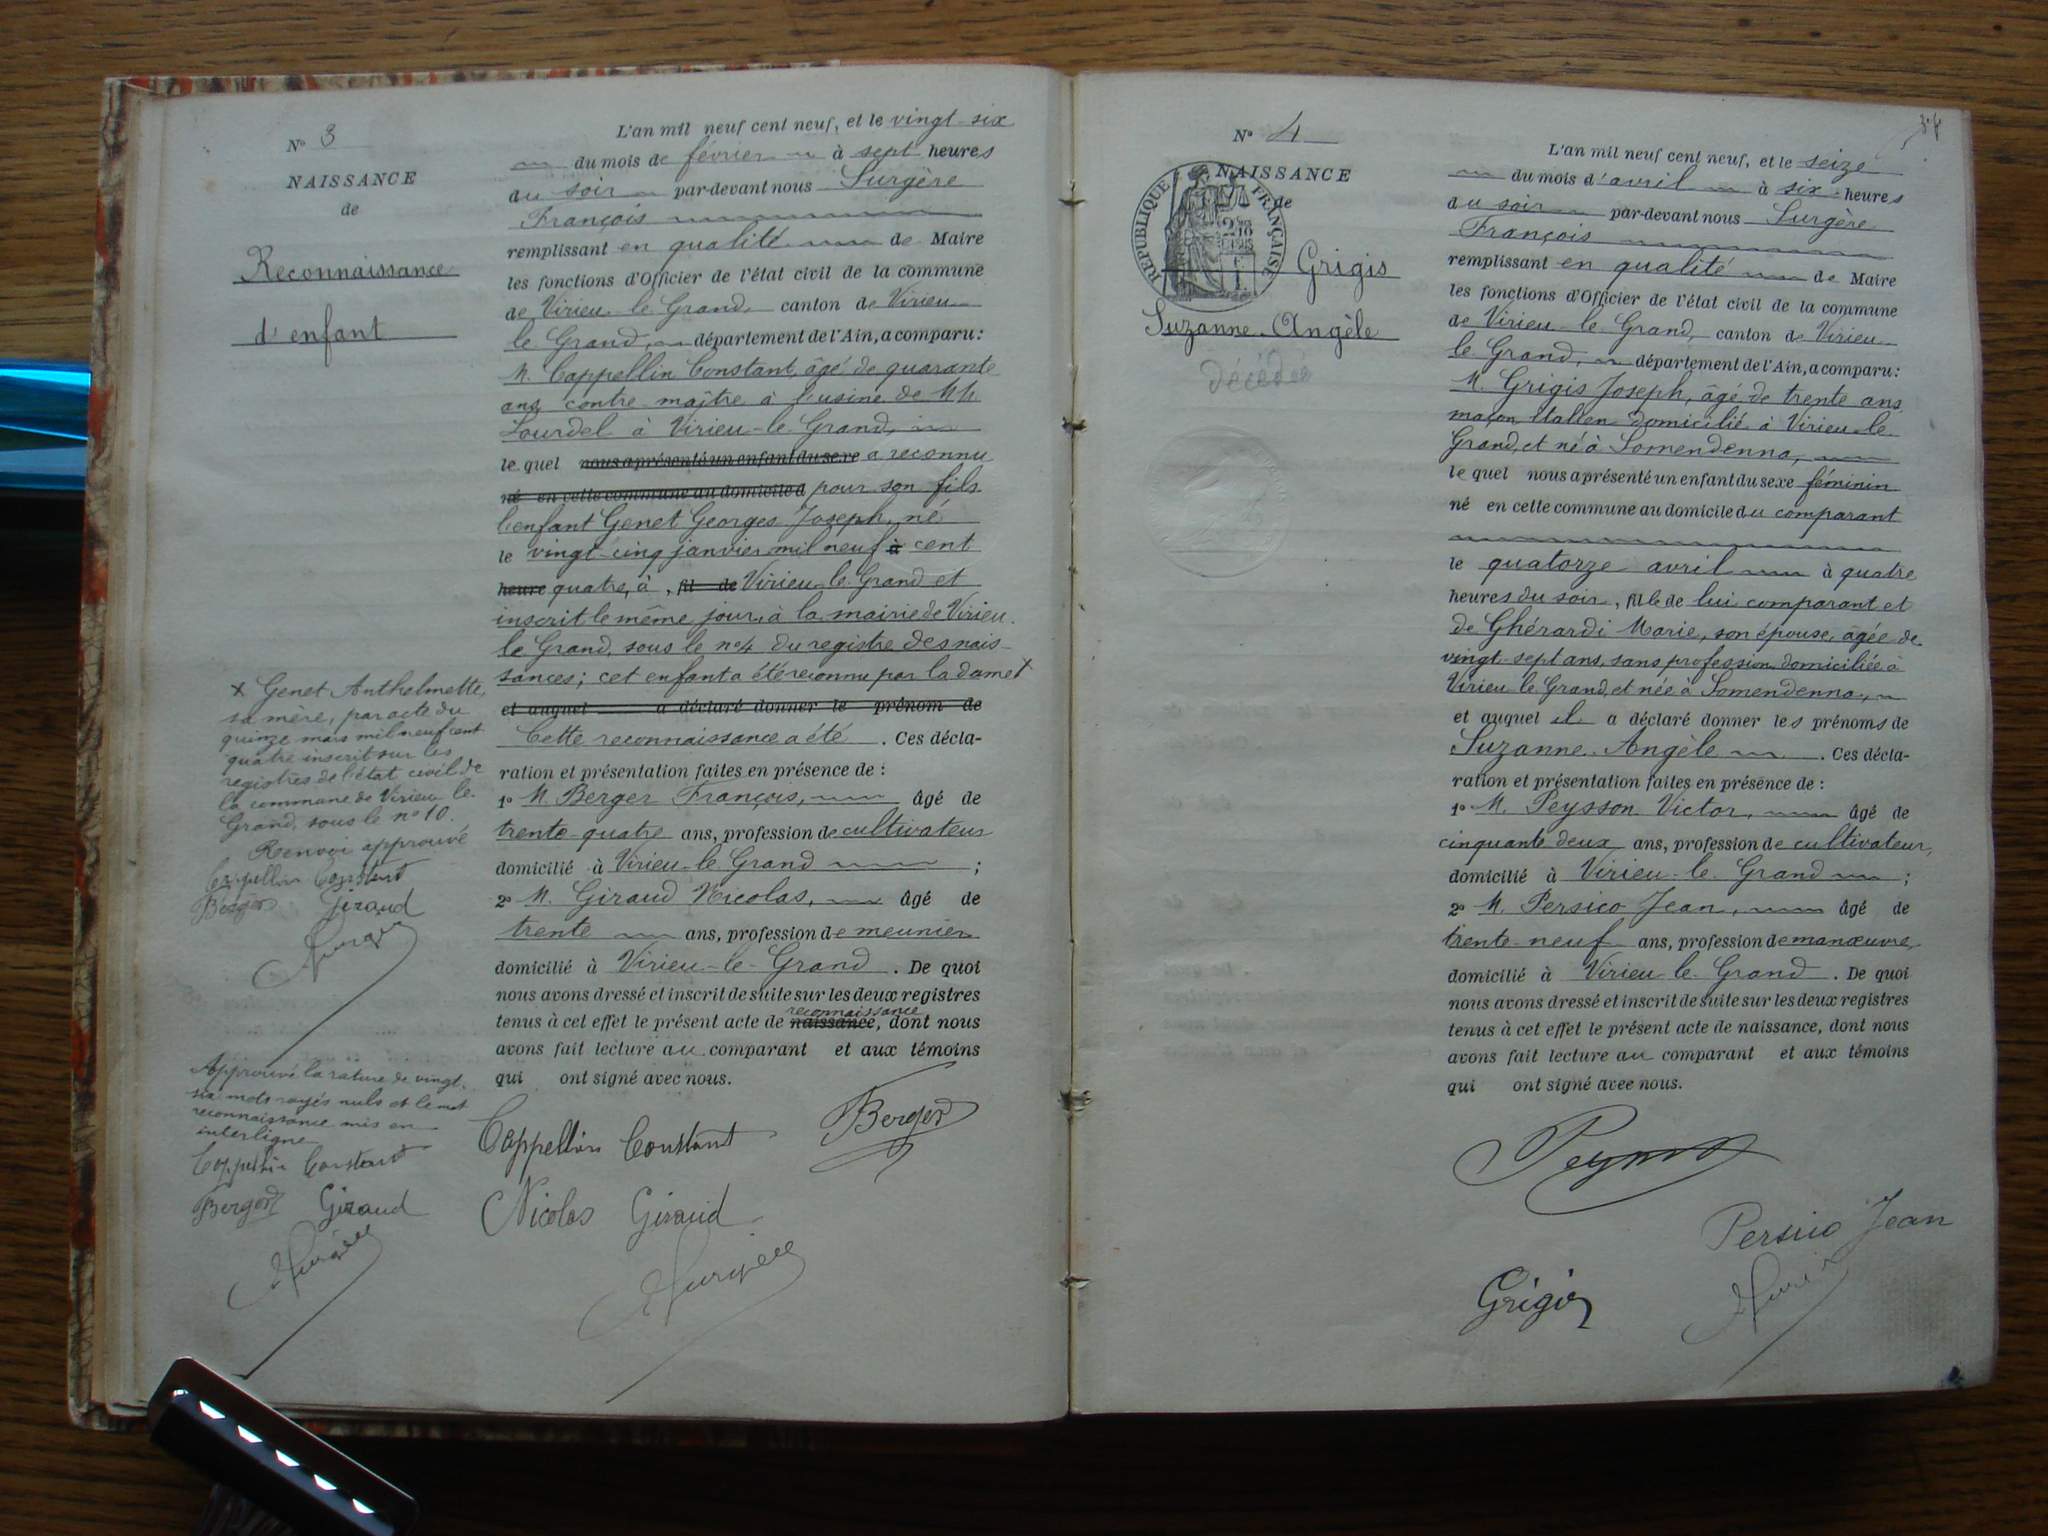 N° 3
NAISSANCE
de
Reconnaissance
d'enfant
L'an mil neuf cent neuf, et le vingt-six
du mois de février à sept heures
du soir par-devant nous Surgère
François
remplissant en qualité de Maire
les fonctions d'Officier de l'état civil de la commune
de Virieu-le-Grand, canton de Virieu-
le Grand, département de l'Ain, a comparu:
M. Cappellin Constant, âgé de quarante
ans contre-maître à l'usine de MM
Lourdel à Virieu-le-Grand,
le quel nous a présenté un enfant du sexe a reconnu
né en cette commune au domicile d pour son fils
l'enfant Genet Georges Joseph, né
le vingt-cinq janvier mil neuf à cent
heure quatre, à , fil de Virieu-le-Grand et
inscrit le même jour, à la mairie de Virieu-
le Grand, sous le n°4 du registre des nais-
sances; cet enfant a été reconnu par la dame x
et auquel a déclaré donner le prénom de
Cette reconnaissance a été . Ces décla-
ration et présentation faites en présence de :
1° M. Berger François, âgé de
trente-quatre ans, profession de cultivateur
domicilié à Virieu-le-Grand ;
2° M. Giraud Nicolas, âgé de
trente ans, profession de meunier
domicilié à Virieu-le-Grand . De quoi
nous avons dressé et inscrit de suite sur les deux registres
reconnaissance
tenus à cet effet le présent acte de naissance, dont nous
avons fait lecture au comparant et aux témoins
qui ont signé avec nous.
Cappellin Constant Berger
Nicolas Giraud
Surgère
x Genet Anthelmette,
sa mère, par acte du
quinze mars mil neuf cent
quatre inscrit sur les
registres de l'état civil de
la commune de Virieu-le-
Grand, sous le n° 10.
Renvoi approuvé
Cappellin Constant
Berger Giraud
Surgère
Approuvé la rature de vingt-
six mots rayés nuls et le mot
reconnaissance mis en
interligne
Cappellin Constant
Berger Giraud
Surgère
N° 4
NAISSANCE
de
RÉPUBLIQUE FRANÇAISE
Grigis
Suzanne-Angèle
décédée
L'an mil neuf cent neuf, et le seize
du mois d'avril à six heures
du soir par-devant nous Surgère
François
remplissant en qualité de Maire
les fonctions d'Officier de l'état civil de la commune
de Virieu-le-Grand, canton de Virieu-
le Grand, département de l'Ain, a comparu:
M. Grigis Joseph, âgé de trente ans,
maçon Italien domicilié à Virieu-le-
Grand, et né à Somendenna,
le quel nous a présenté un enfant du sexe féminin
né en cette commune au domicile du comparant
le quatorze avril à quatre
heures du soir, fille de lui comparant et
de Ghérardi Marie, son épouse, agée de
vingt-sept ans, sans profession domiciliée à
Virieu-le-Grand, et née à Somendenna,
et auquel il a déclaré donner les prénoms de
Suzanne-Angèle . Ces décla-
ration et présentation faites en présence de :
1° M. Peysson Victor, âgé de
cinquante deux ans, profession de cultivateur,
domicilié à Virieu-le-Grand ;
2° M. Persico Jean, âgé de
trente-neuf ans, profession de manœuvre,
domicilié à Virieu-le-Grand . De quoi
nous avons dressé et inscrit de suite sur les deux registres
tenus à cet effet le présent acte de naissance, dont nous
avons fait lecture au comparant et aux témoins
qui ont signé avec nous.
Peysson
Persico Jean
Grigis
Surgère